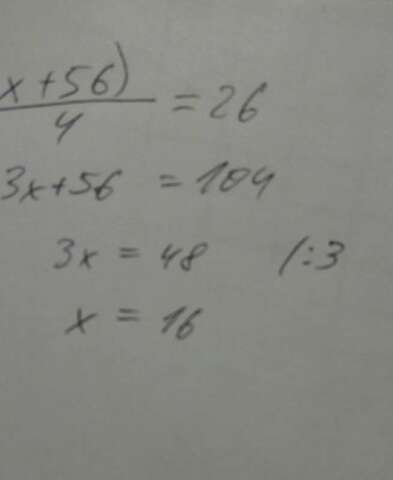 x+56)/4 = 26
3x+56 = 104
3x = 48 /:3
x = 16